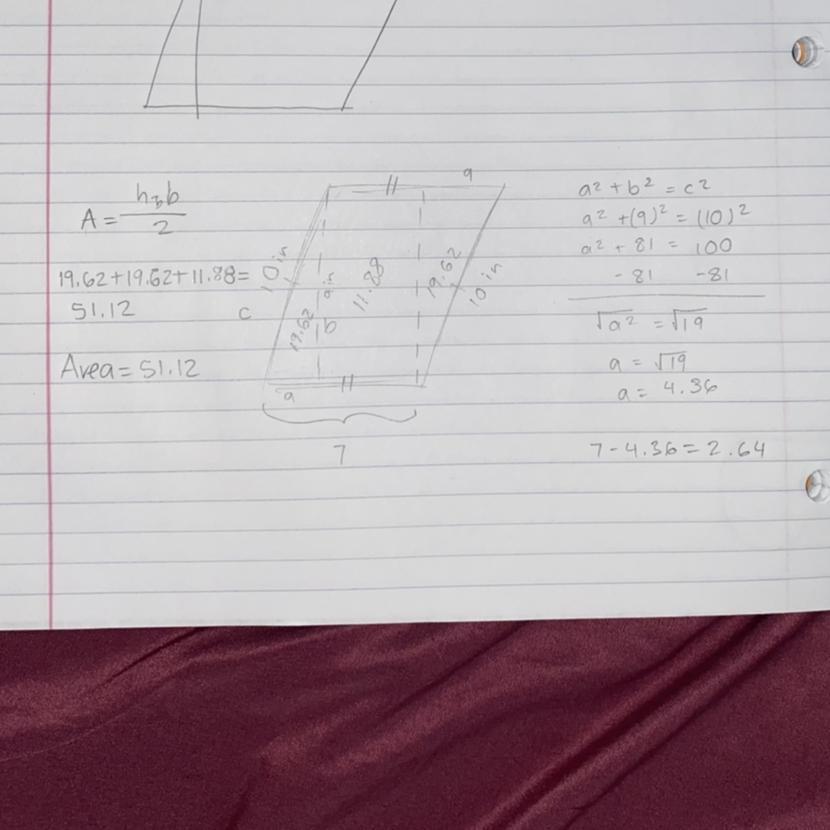 A = h·b / 2
19.62+19.62+11.88=
51.12
Area = 51.12
a
10 in
9 in
11.88
19.62
10 in
c
19.62
b
a
7
a² + b² = c²
a² + (9)² = (10)²
a² + 81 = 100
-81 -81
√a² = √19
a = √19
a = 4.36
7 - 4.36 = 2.64